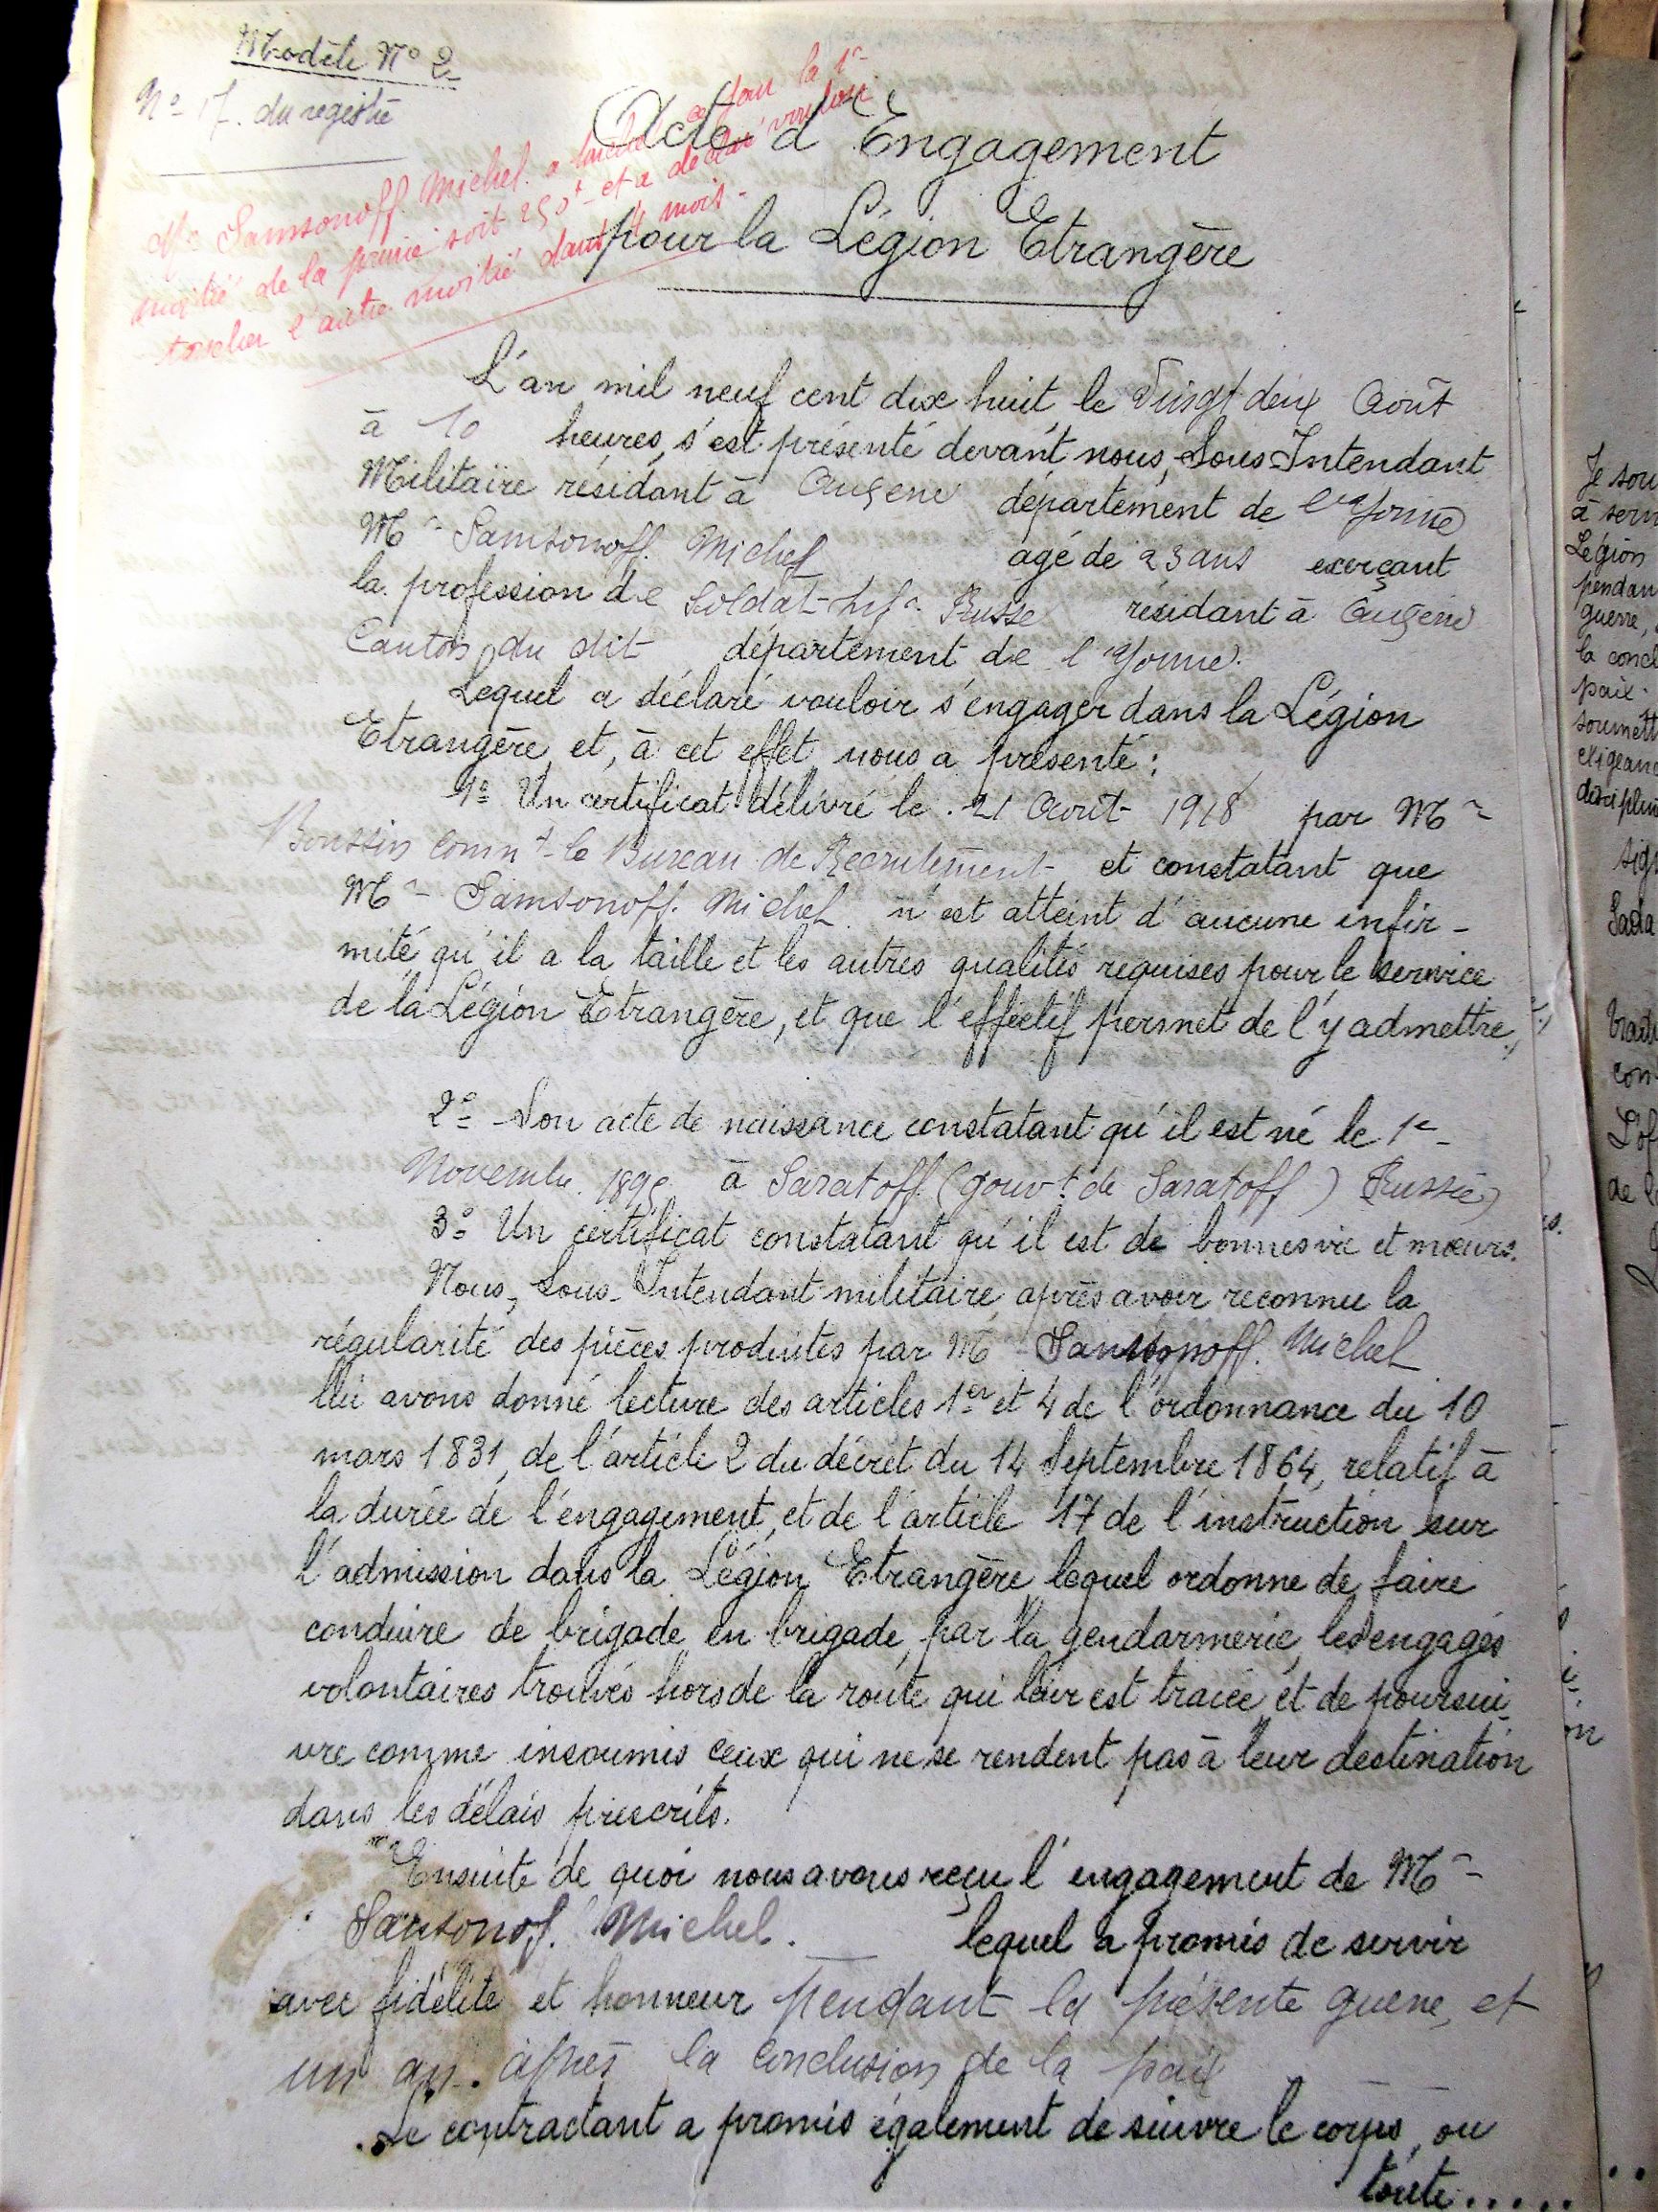 Modèle N° 2
N° 17. du registre
Mr Samsonoff Michel. a touché ce jour la 1e
moitié de la prime soit 250f et a déclaré vouloir
toucher l'autre moitié dans 4 mois.
Acte d'Engagement
pour la Légion Etrangère
L'an mil neuf cent dix huit le Vingt deux Août
à 10 heures, s'est présenté devant nous, Sous-Intendant
Militaire résidant à département de l'Yonne
Mr Samsonoff. Michel agé de 23 ans exerçant
la profession de Soldat Infie Russe résidant à
Canton du dit département de l'Yonne.
Lequel a déclaré vouloir s'engager dans la Légion
Etrangère et, à cet effet nous a présenté:
1° Un certificat délivré le 21 Août 1918 par Mr
Boussin Commt le Bureau de Recrutement et constatant que
Mr Samsonoff. Michel n'est atteint d'aucune infir-
mité qu'il a la taille et les autres qualités requises pour le service
de la Légion Etrangère, et que l'effectif permet de l'y admettre,
2° Son acte de naissance constatant qu'il est né le 1er
Novembre 1895 à Saratoff (gouvt de Saratoff) Russie)
3° Un certificat constatant qu'il est de bonnes vie et mœurs.
Nous, Sous-Intendant militaire après avoir reconnu la
régularité des pièces produites par Mr Samsonoff. Michel
lui avons donné lecture des articles 1er et 4 de l'ordonnance du 10
mars 1831, de l'article 2 du décret du 14 Septembre 1864, relatif à
la durée de l'engagement, et de l'article 17 de l'instruction sur
l'admission dans la Légion Etrangère lequel ordonne de faire
conduire de brigade en brigade, par la gendarmerie, les engagés
volontaires trouvés hors de la route qui leur est tracée et de poursui-
vre comme insoumis ceux qui ne se rendent pas à leur destination
dans les délais prescrits.
Ensuite de quoi nous avons reçu l'engagement de Mr
Samsonof. Michel. lequel a promis de servir
avec fidélité et honneur pendant la présente guerre, et
un an. après la conclusion de la paix
Le contractant a promis également de suivre le corps, ou
toute.....
Je sou
à serv
Légion
pendan
guerre,
la concl
paix.
soumett
exigean
disciplin
sign
Sada
trad
con
L'of
de l